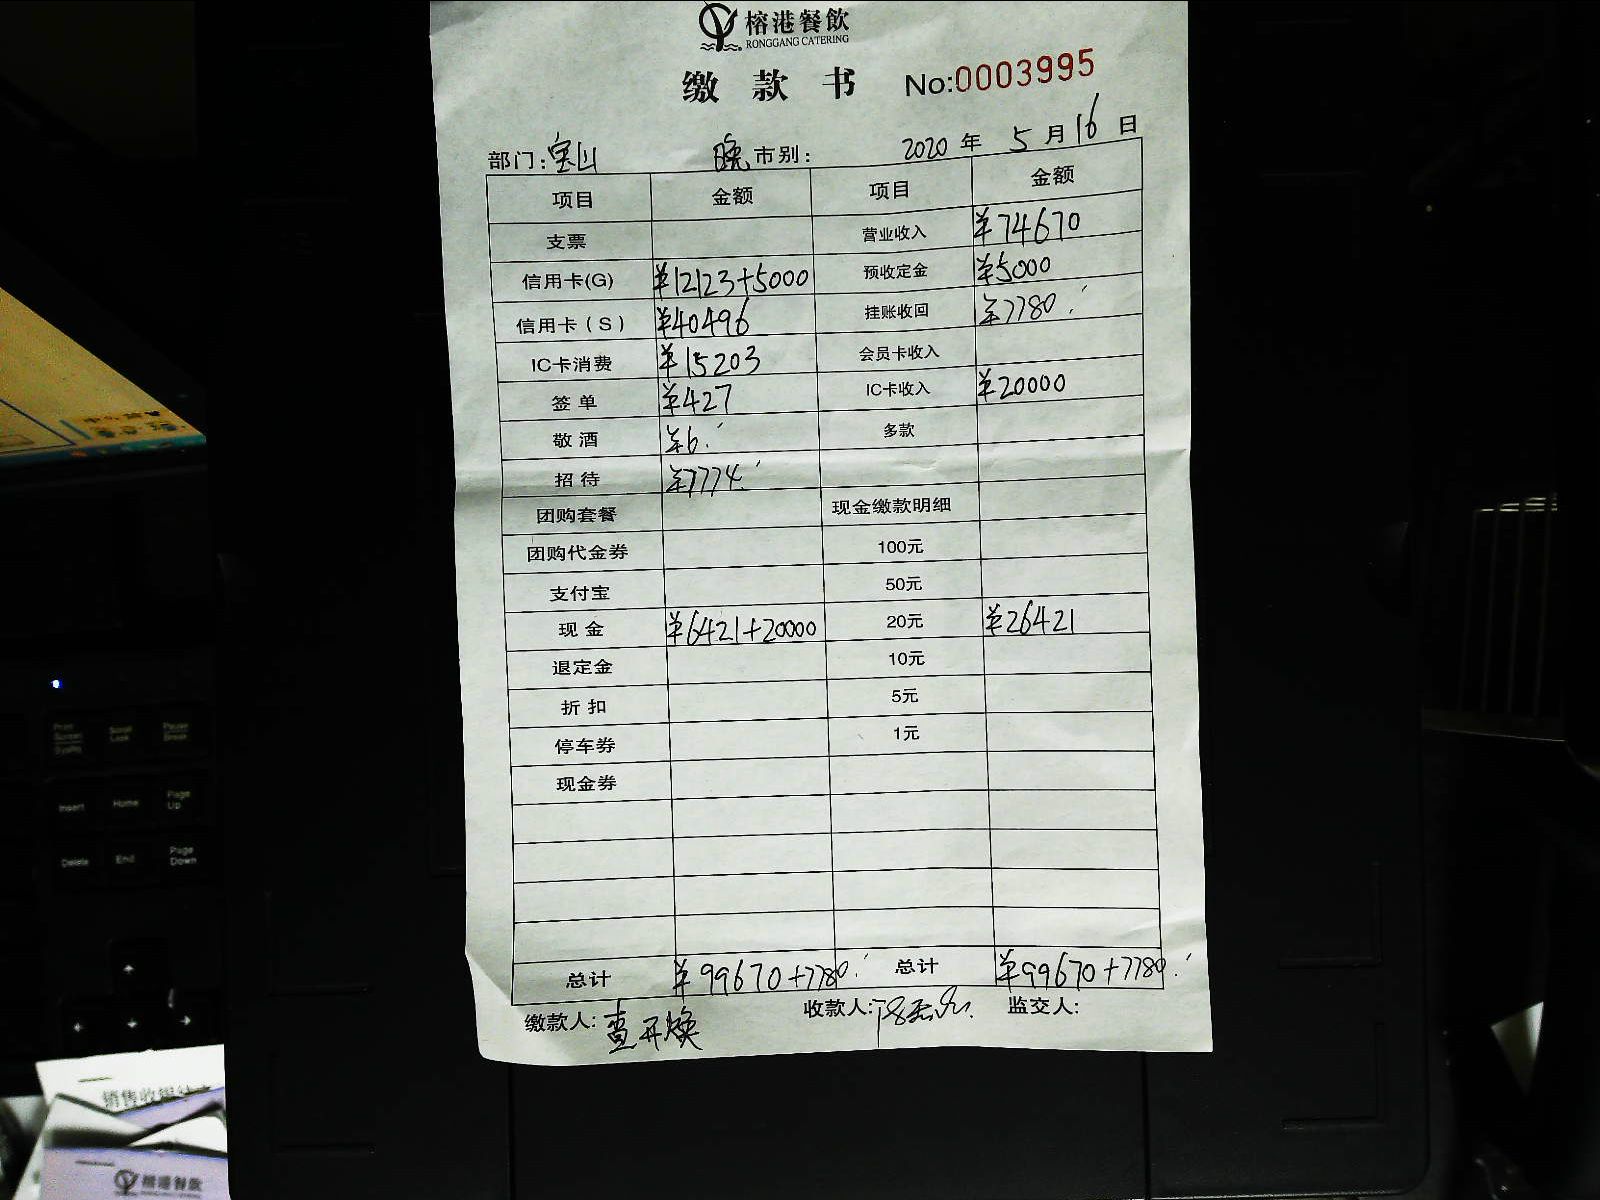 榕港餐飲
RONGGANG CATERING
缴款书 No:0003995
部门:宝山 晚市别: 2020年5月16日
项目 金额 项目 金额
支票 营业收入 ¥74670
信用卡(G) ¥12123+5000 预收定金 ¥5000
信用卡(S) ¥40496 挂账收回 ¥7780.
IC卡消费 ¥15203 会员卡收入
签单 ¥427 IC卡收入 ¥20000
敬酒 ¥6. 多款
招待 ¥7774.
团购套餐 现金缴款明细
团购代金券 100元
支付宝 50元
现金 ¥6421+20000 20元 ¥26421
退定金 10元
折扣 5元
停车券 1元
现金券
总计 ¥99670+7780. 总计 ¥99670+7780.
缴款人:查开焕 收款人: 监交人:
Print Screen SysRq Scroll Lock Pause Break
Insert Home Page Up
Delete End Page Down
榕港餐飲